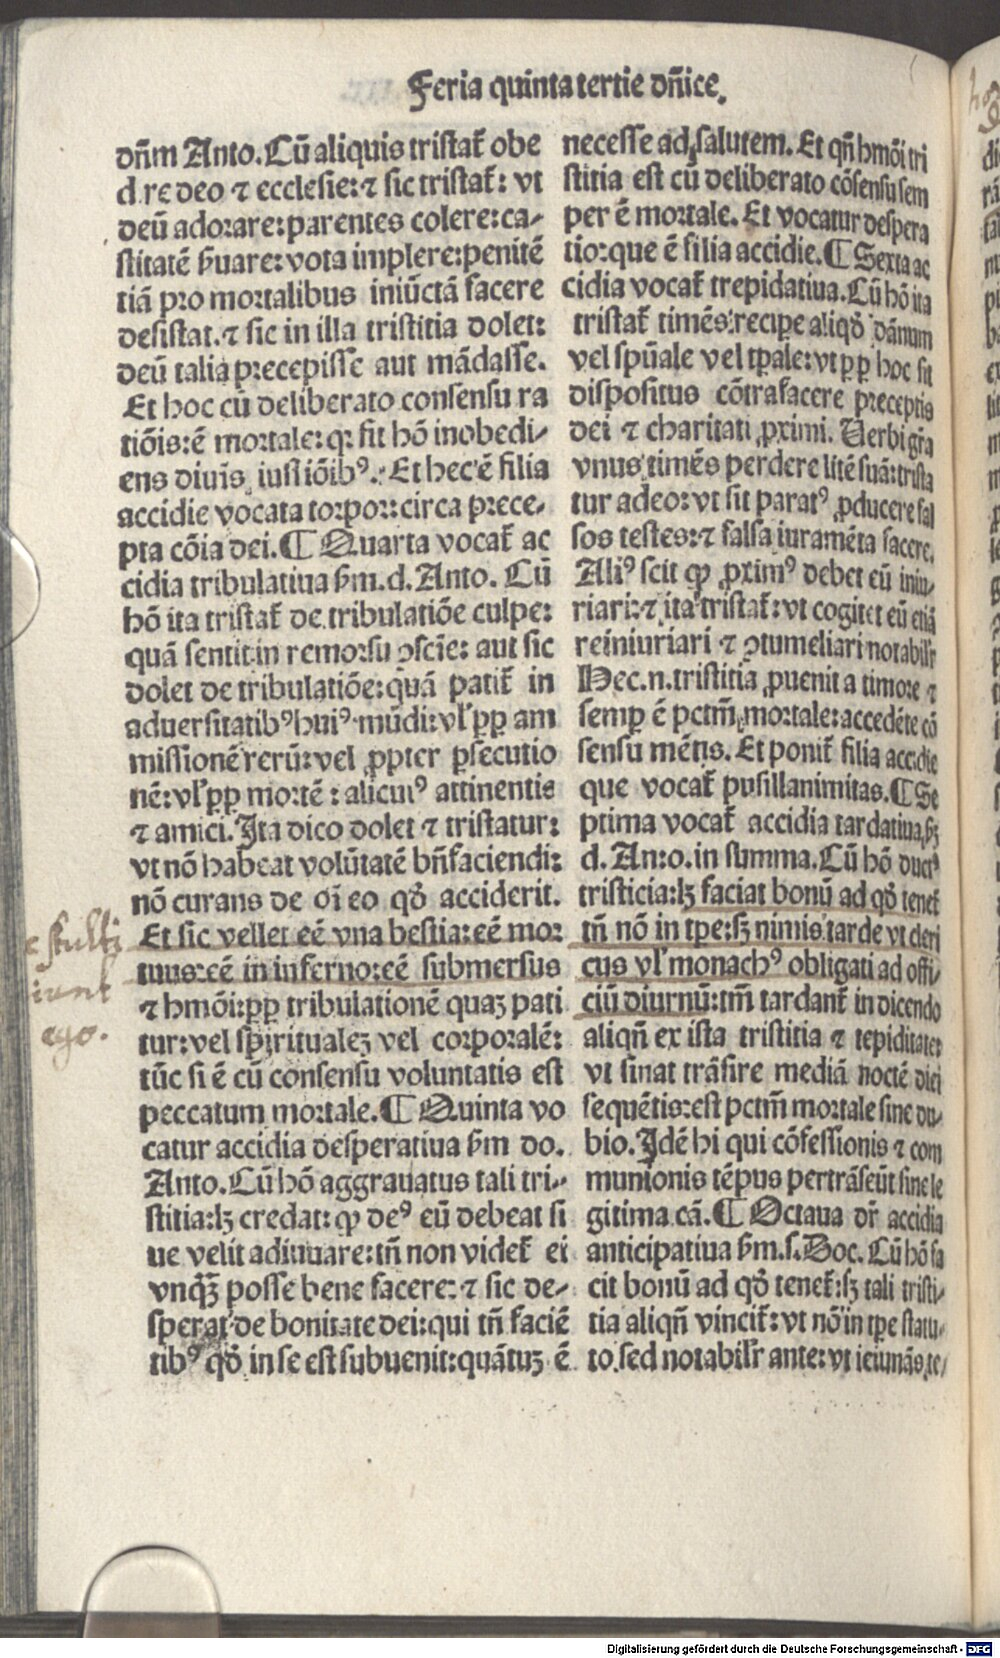 Feria quinta tertie dñice.
dñm Anto. Cũ aliquis tristať obe
d re deo ⁊ ecclesie: ⁊ sic tristať: vt
deũ adorare: parentes colere: ca-
stitatẽ ẜuare: vota implere: penitẽ
tiã pro mortalibus iniũctã facere
desistat. ⁊ sic in illa tristitia dolet:
deũ talia precepisse aut mãdasse.
Et hoc cũ deliberato consensu ra
tiõis: ẽ mortale: qꝛ fit hõ inobedi-
ens diuis iussiõibꝰ. Et hec ẽ filia
accidie vocata torpor: circa prece-
pta cõia dei. ¶ Quarta vocať ac
cidia tribulatiua ẜm. d. Anto. Cũ
hõ ita tristať de tribulatiõe culpe:
quã sentit in remorsu ↄscĩe: aut sic
dolet de tribulatiõe: quã patiť in
aduersitatibꝰ huiꝰ mũdi: vľ ꝓp am
missionẽ rerũ: vel ꝓpter ꝑsecutio
nẽ: vľ ꝓp mortẽ: alicuiꝰ attinentis
⁊ amici. Ita dico dolet ⁊ tristatur:
vt nõ habeat volũtatẽ bñfaciendi:
nõ curans de oĩ eo qð acciderit.
Et sic vellet eẽ vna bestia: eẽ mor
tuus: eẽ in inferno: eẽ submersus
⁊ hmõi: ꝓp tribulationẽ quaꝫ pati
tur: vel spiritualeꝫ vel corporalẽ:
tũc si ẽ cũ consensu voluntatis est
peccatum mortale. ¶ Quinta vo
catur accidia desperatiua ẜm do.
Anto. Cũ hõ aggrauatus tali tri-
stitia: lꝫ credat: ꝙ deꝰ eũ debeat si
ue velit adiuuare: tñ non videť ei
vnqꝫ posse bene facere: ⁊ sic de-
sperat de bonitate dei: qui tñ faciẽ
tibꝰ qð in se est subuenit: quãtuꝫ ẽ
necesse ad salutem. Et qñ hmõi tri
stitia est cũ deliberato cõsensu sem
per ẽ mortale. Et vocatur despera
tio: que ẽ filia accidie. ¶ Sexta ac
cidia vocať trepidatiua. Cũ hõ ita
tristať timẽs: recipe aliqð dãnum
vel spũale vel tꝑale: vt ꝓp hoc sit
dispositus cõtrafacere preceptis
dei ⁊ charitati ꝓximi. Uerbi grã
vnus timẽs perdere litẽ suã: trista
tur adeo: vt sit paratꝰ ꝓducere fal
sos testes: ⁊ falsa iuramẽta facere.
Aliꝰ scit ꝙ ꝓximꝰ debet eũ iniu-
riari: ⁊ ita tristať: vt cogitet eũ etiã
reiniuriari ⁊ ↄtumeliari notabilľr
Hec. n. tristitia ꝓuenit a timore ⁊
semꝑ ẽ pctm̃ mortale: accedẽte cõ
sensu mẽtis. Et poniť filia accidie
que vocať pusillanimitas. ¶ Se
ptima vocať accidia tardatiua, ẜꝫ
d. Anto. in summa. Cũ hõ ductꝰ
tristicia: lꝫ faciat bonũ ad qð teneť
tñ nõ in tꝑe: sꝫ nimis tarde vt cleri
cus vľ monachꝰ obligati ad offi-
ciũ diurnũ: tm̃ tardanť in dicendo
aliqñ ex ista tristitia ⁊ tepiditate:
vt sinat trãsire mediã noctẽ diei
sequẽtis: est pctm̃ mortale sine du-
bio. Idẽ hi qui cõfessionis ⁊ com
munionis tẽpus pertrãseũt sine le
gitima cã. ¶ Octaua dr̃ accidia
anticipatiua ẜm. s. Doc. Cũ hõ fa
cit bonũ ad qð teneť: sꝫ tali tristi-
tia aliqñ vinciť: vt nõ in tꝑe statu-
to. sed notabilľr ante: vt ieiunãs. te-
Digitalisierung gefördert durch die Deutsche Forschungsgemeinschaft - DFG